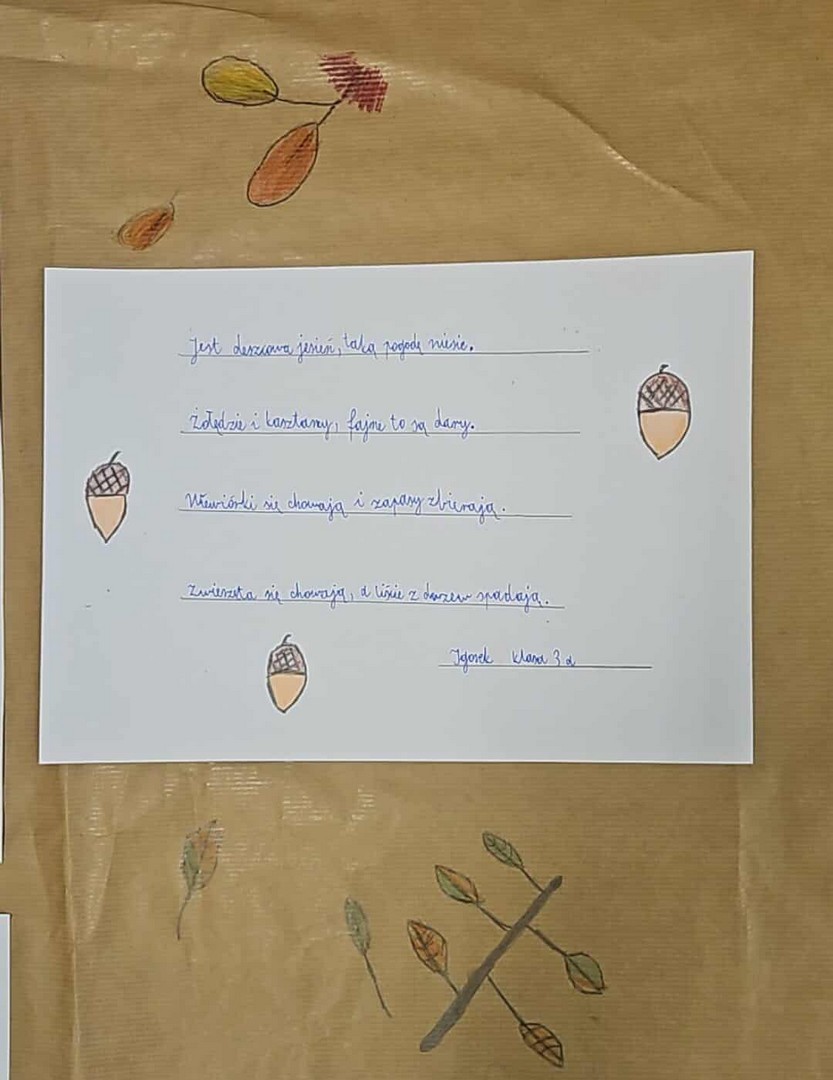 Jest deszczowa jesień, taką pogodę niesie.
Żołędzie i kasztany, fajne to są dary.
Wiewiórki się chowają i zapasy zbierają.
Zwierzęta się chowają, a liście z drzew spadają.
Igorek klasa 3a